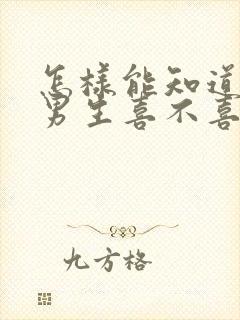 怎様能知道
男生喜不喜
九方格